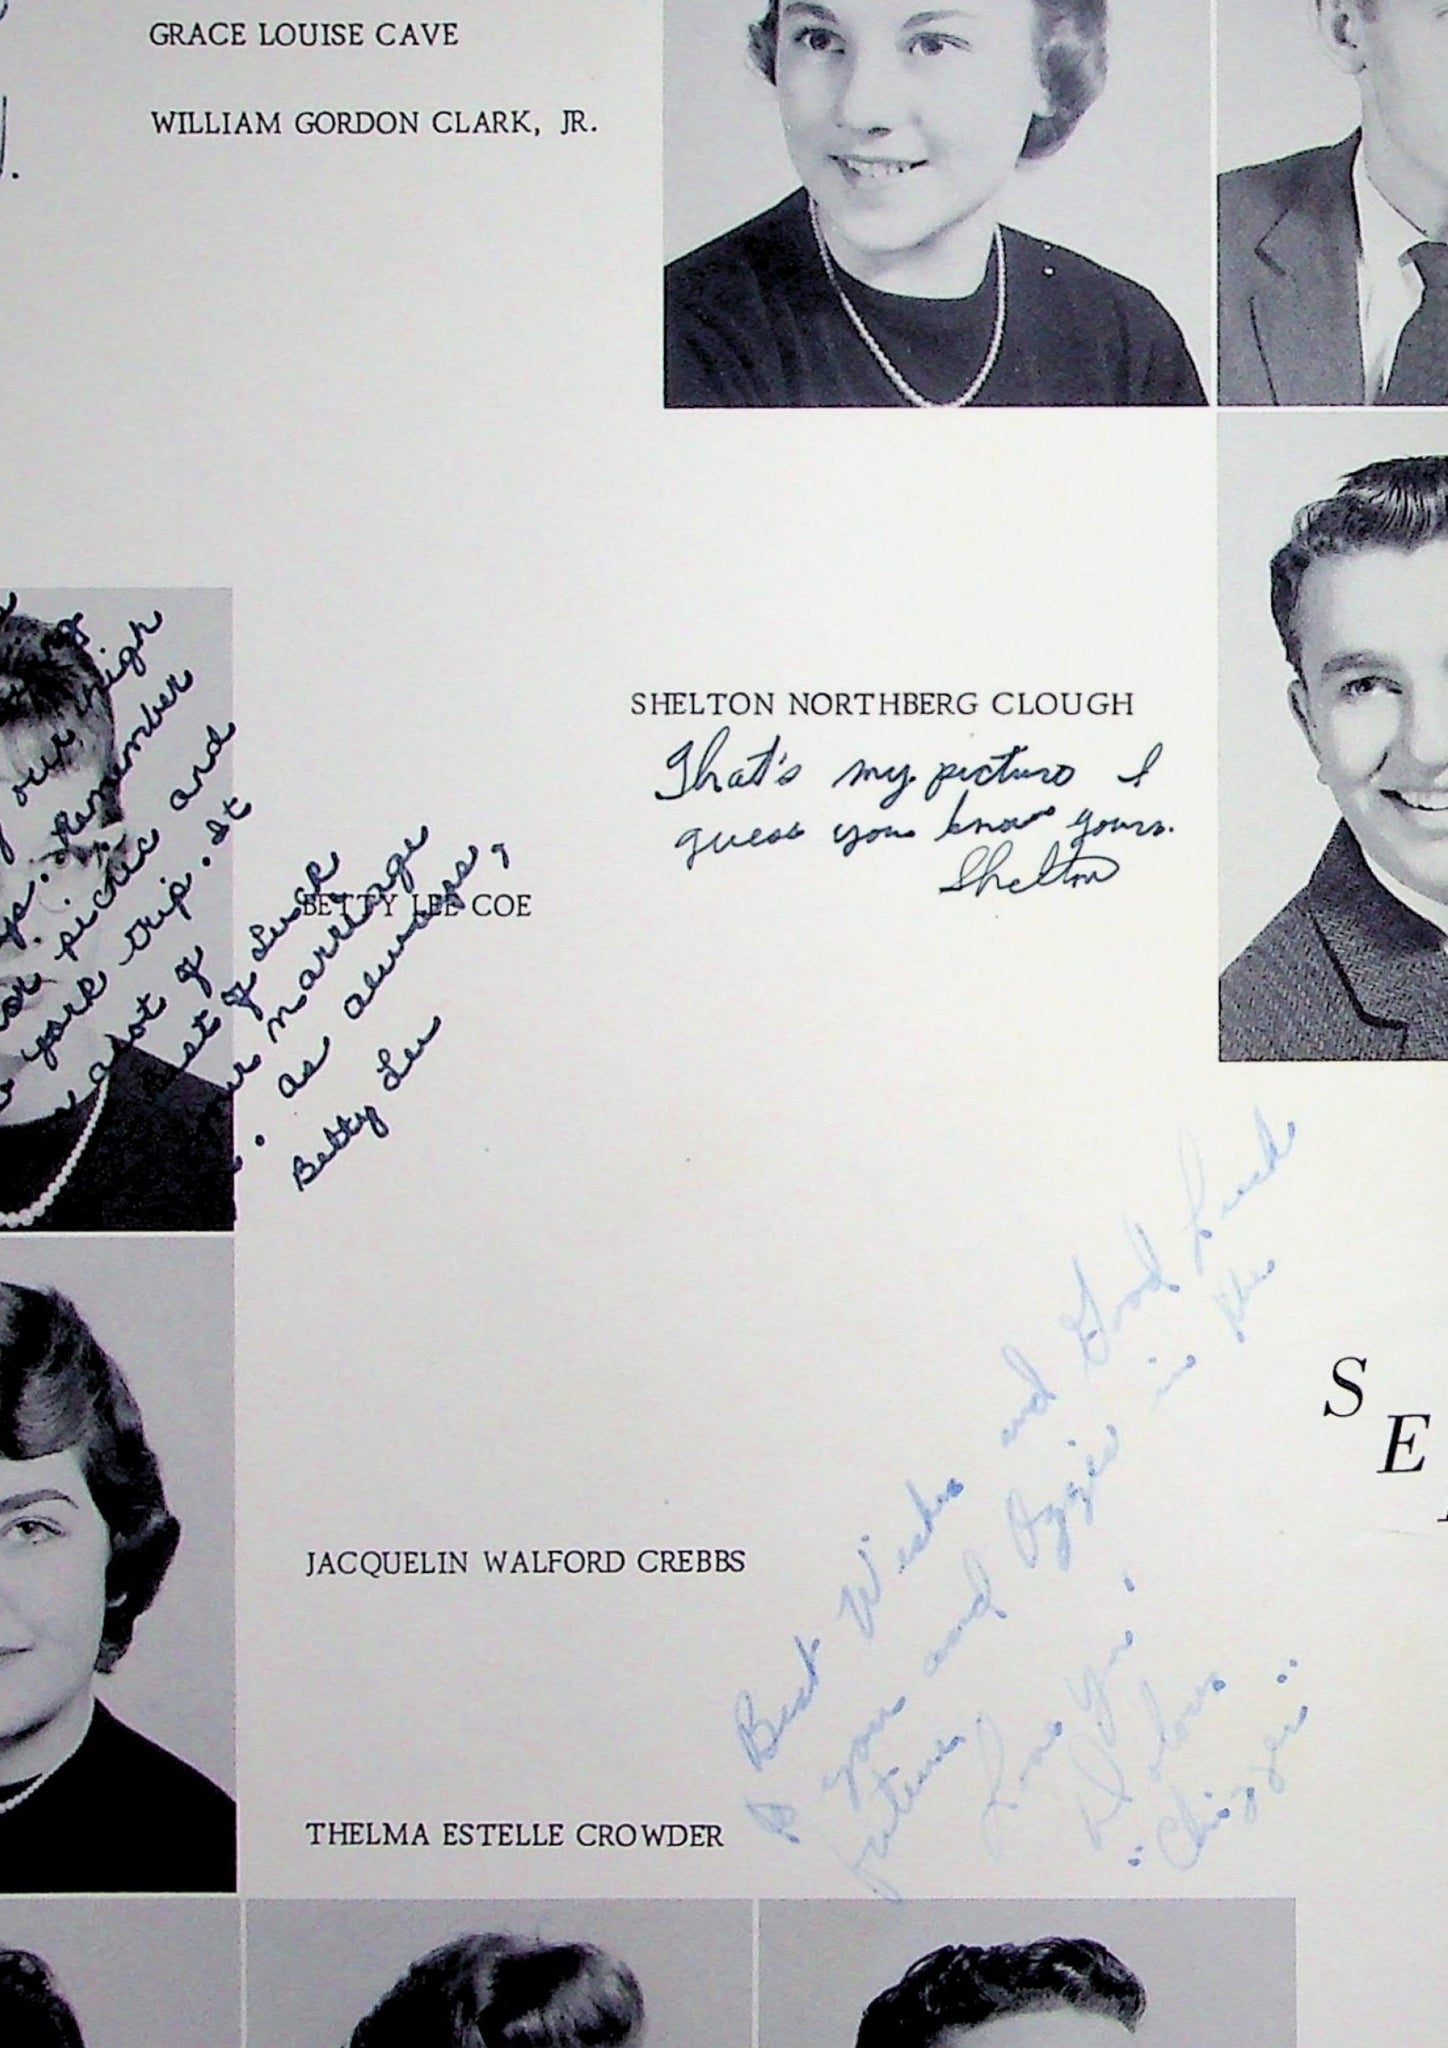 GRACE LOUISE CAVE
WILLIAM GORDON CLARK, JR.
SHELTON NORTHBERG CLOUGH
That's my picture I
guess you know yours.
Shelton
our high
Remember
picnic and
york trip. It
alot of
of Luck
marriage
as always,
Betty Lee
BETTY LEE COE
JACQUELIN WALFORD CREBBS
THELMA ESTELLE CROWDER
Best Wishes and Good Luck
to you and Ozzie in the
future.
Love Ya'
Delores
"Chizzer"
S
E